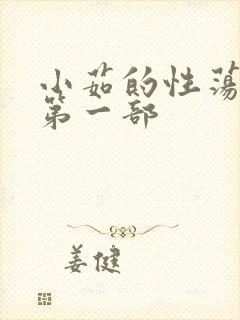 小茹的性荡
第一部
姜健